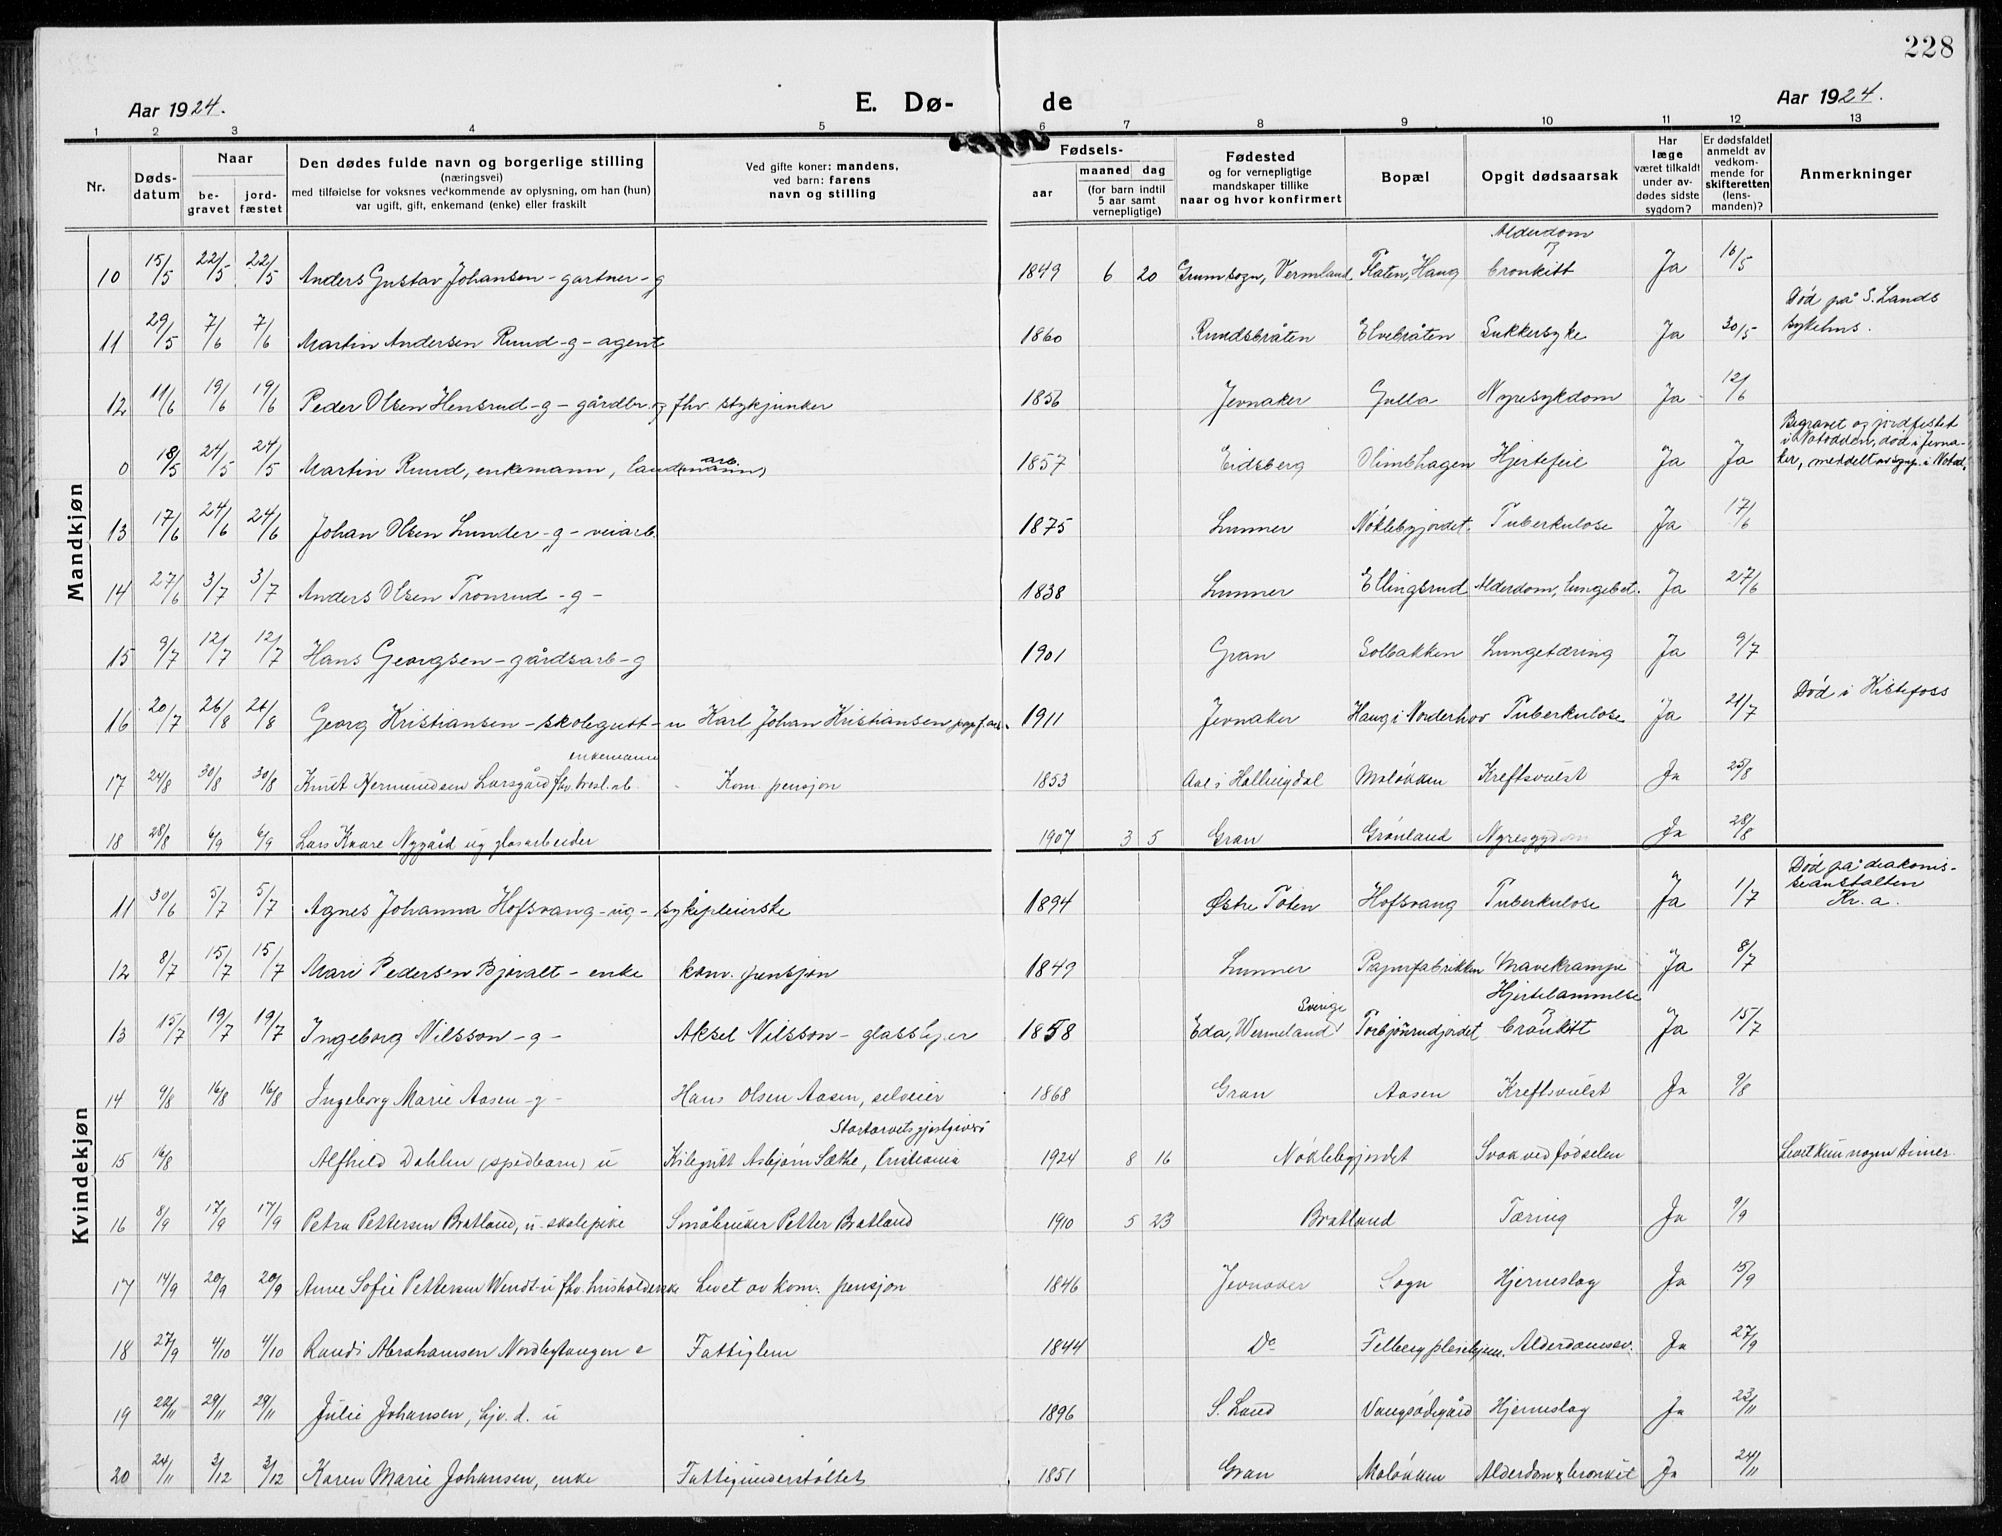 228
Aar 1924.
E. Dø- de
Aar 1924.
1 2 3 4 5 6 7 8 9 10 11 12 13
Nr.
Døds-
datum
Naar
be-
gravet
jord-
fæstet
Den dødes fulde navn og borgerlige stilling
(næringsvei)
med tilføielse for voksnes vedkommende av oplysning, om han (hun)
var ugift, gift, enkemand (enke) eller fraskilt
Ved gifte koner: mandens,
ved barn: farens
navn og stilling
Fødsels-
aar
maaned dag
(for barn indtil
5 aar samt
vernepligtige)
Fødested
og for vernepligtige
mandskaper tillike
naar og hvor konfirmert
Bopæl
Opgit dødsaarsak
Har
læge
været tilkaldt
under av-
dødes sidste
sygdom?
Er dødsfaldet
anmeldt av
vedkom-
mende for
skifteretten
(lens-
manden)?
Anmerkninger
Mandkjøn
10 15/5 22/5 22/5 Anders Gustav Johansen - gartner - g 1849 6 20 Grumsogn, Vermland Flaten, Haug Alderdom og bronkitt Ja 16/5
11 29/5 7/6 7/6 Martin Andersen Ruud - g - agent 1860 Ruudsbråten Elvebråten Sukkersyke Ja 30/5 Død på S. Lands sykehus.
12 11/6 19/6 19/6 Peder Olsen Hensrud - g - gårdbr. og fhv. stykjunker 1856 Jevnaker Gulla Nyresykdom Ja 12/6
0 18/5 24/5 24/5 Martin Ruud, enkemann, landemann arb. 1857 Eidsberg Olimbhagen Hjertefeil Ja Ja Begravet og jordfestet i Notodden, død i Jevnaker, meddelt av sogp. i Notod.
13 17/6 24/6 24/6 Johan Olsen Lunder - g - veiarb 1875 Lunner Nøklebyjordet Tuberkulose Ja 17/6
14 27/6 3/7 3/7 Anders Olsen Tronrud - g - 1838 Lunner Ellingsrud Alderdom, lungebet. Ja 27/6
15 9/7 12/7 12/7 Hans Georgsen - gårdsarb - g 1901 Gran Solbakken Lungetæring Ja 9/7
16 20/7 26/8 26/8 Georg Kristiansen - skolegutt - u Karl Johan Kristiansen papf. arb. 1911 Jevnaker Haug i Norderhov Tuberkulose Ja 21/7 Død i Kistefoss
17 24/8 30/8 30/8 Knut Hermundsen Larsgård fhv. bresl. arb. enkemann Kom. pensjon 1853 Aal i Hallingdal Moløkken Kreftsvulst Ja 25/8
18 28/8 6/9 6/9 Lars Kaare Nygård ug glasarbeider 1907 3 5 Gran Grønland Nyresygdom Ja 28/8
Kvindekjøn
11 30/6 5/7 5/7 Agnes Johanna Hofsvang - ug - sykepleierske 1894 Østre Toten Hofsvang Tuberkulose Ja 1/7 Død på diakonisseanstalten Kr. a.
12 8/7 15/7 15/7 Mari Pedersen Bjøralt - enke kom. pensjon 1849 Lunner Papirfabrikken Mavekrampe Ja 8/7
13 15/7 19/7 19/7 Ingeborg Nilsson - g - Aksel Nilsson - glassliper 1858 Eda, Wermeland Sverige Torbjørnrudjordet Hjertelammelse og bronkitt Ja 15/7
14 9/8 16/8 16/8 Ingeborg Marie Aasen - g - Hans Olsen Aasen, selveier 1868 Gran Aasen Kreftsvulst Ja 9/8
15 16/8 Alfhild Dahlen (spedbarn) u Asbjørn Sæthe, Kristiania 1924 8 16 Nøklebyjordet Svak ved fødselen Levet kun nogen timer.
16 8/9 17/9 17/9 Petra Pettersen Bratland, u. skolepike Småbruker Petter Bratland 1910 5 23 Bratland Tæring Ja 9/9
17 14/9 20/9 20/9 Anne Sofie Pettersen Wendt u fhv. husholderske Levet av kom. pensjon 1846 Jevnaker Sogn Hjerneslag Ja 15/9
18 27/9 4/10 4/10 Randi Abrahamsen Nordbytangen e Fattiglem 1844 Do Felberg pleiehjem. Alderdomssv. Ja 27/9
19 22/11 29/11 29/11 Julie Johansen, hjv. d. u 1896 S. Land Vangsødegård Hjerneslag Ja 23/11
20 24/11 3/12 3/12 Karen Marie Johansen, enke Fattigunderstøttet 1851 Gran Moløkken Alderdom & bronkit Ja 24/11